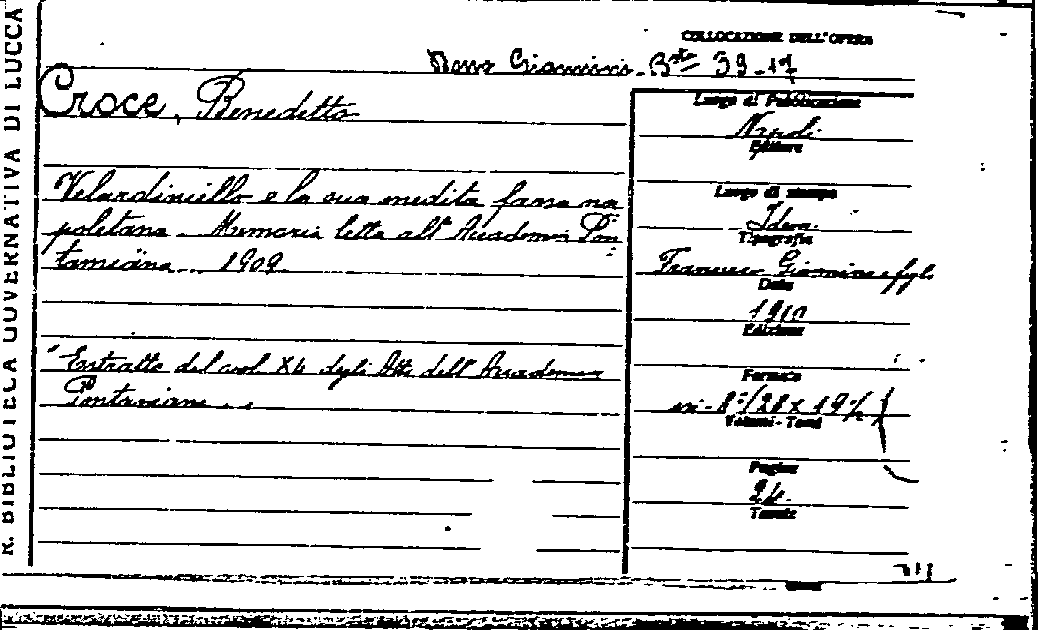 R. BIBLIOTECA GOVERNATIVA DI LUCCA
COLLOCAZIONE DELL'OPERA
Giannini - B.ta 39-17
Croce, Benedetto
Velardiniello e la sua inedita farsa na
poletana - Memoria letta all'Accademia Pon=
taniana - 1909.
"Estratto del vol XL degli Atti dell'Accademia
Pontaniana"
Luogo di Pubblicazione
Napoli
Editore
Luogo di stampa
Idem.
Tipografia
Francesco Giannini e figli
Data
1910
Edizione
Formato
in-8°/28 x 19½
Volumi - Tomi
Pagine
24.
Tavole